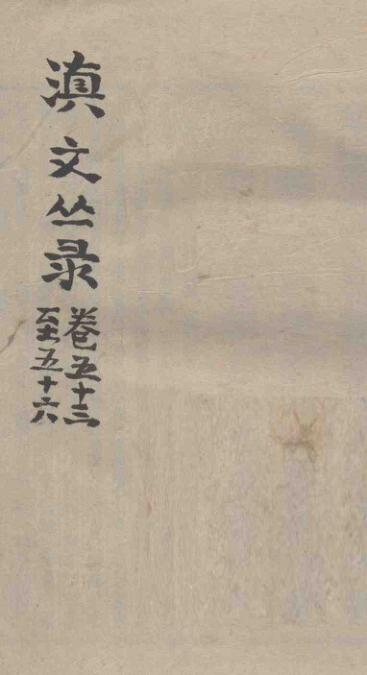 滇文丛录
卷五十三
至五十六